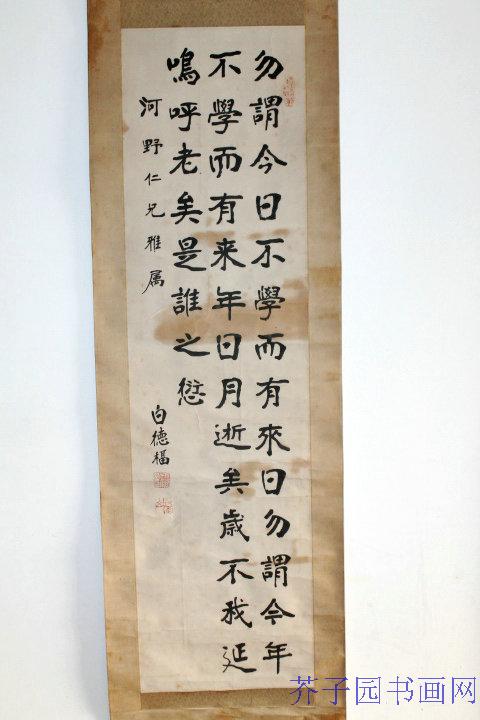 勿謂今日不學而有來日勿謂今年
不學而有来年日月逝矣歲不我延
嗚呼老矣是誰之愆
河野仁兄雅属
白德福
芥子园书画网